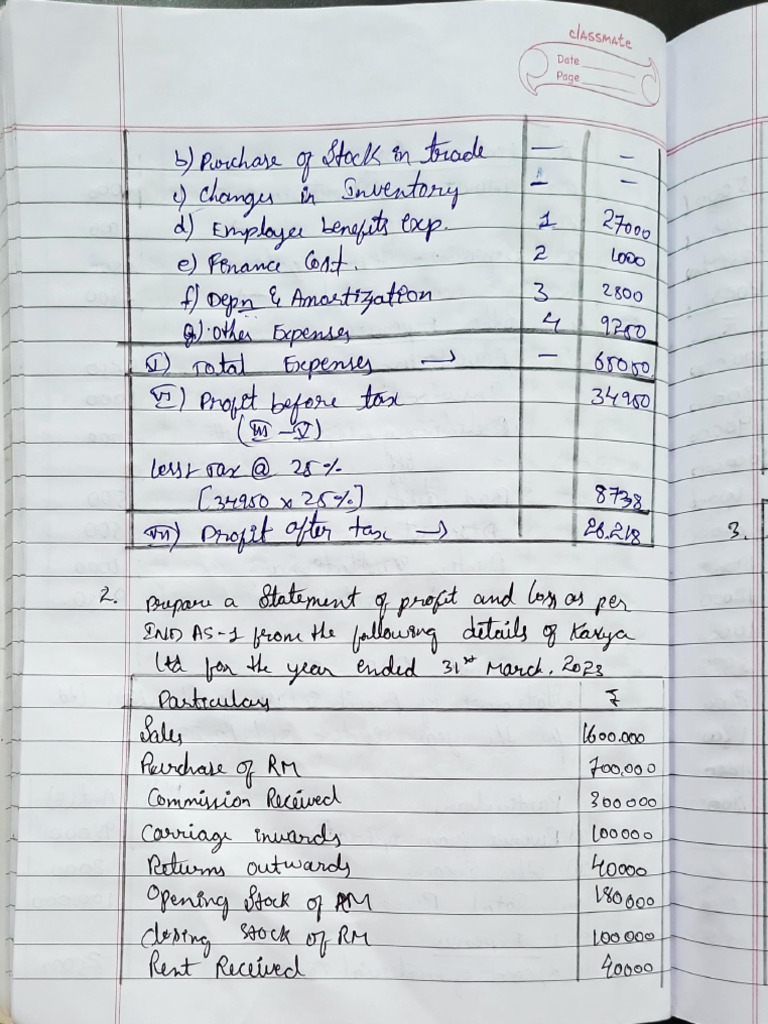 classmate
Date
Page
b) Purchase of Stock in trade — –
c) Changes in Inventory – –
d) Employee benefits exp. 1 27000
e) Finance Cost. 2 1000
f) Depn & Amortization 3 2800
g) Other Expenses 4 9250
V) Total Expenses → — 65050
VI) Profit before tax 34950
(III – V)
Less:- Tax @ 25%
[34950 x 25%] 8738
VII) Profit after tax → 26.218
3.
2. Prepare a Statement of profit and loss as per
IND AS-1 from the following details of Kavya
Ltd for the year ended 31st March. 2023
Particulars ₹
Sales 1600.000
Purchase of RM 700,000
Commission Received 300000
Carriage inwards 100000
Returns outwards 40000
Opening Stock of RM 180000
Closing Stock of RM 100000
Rent Received 40000